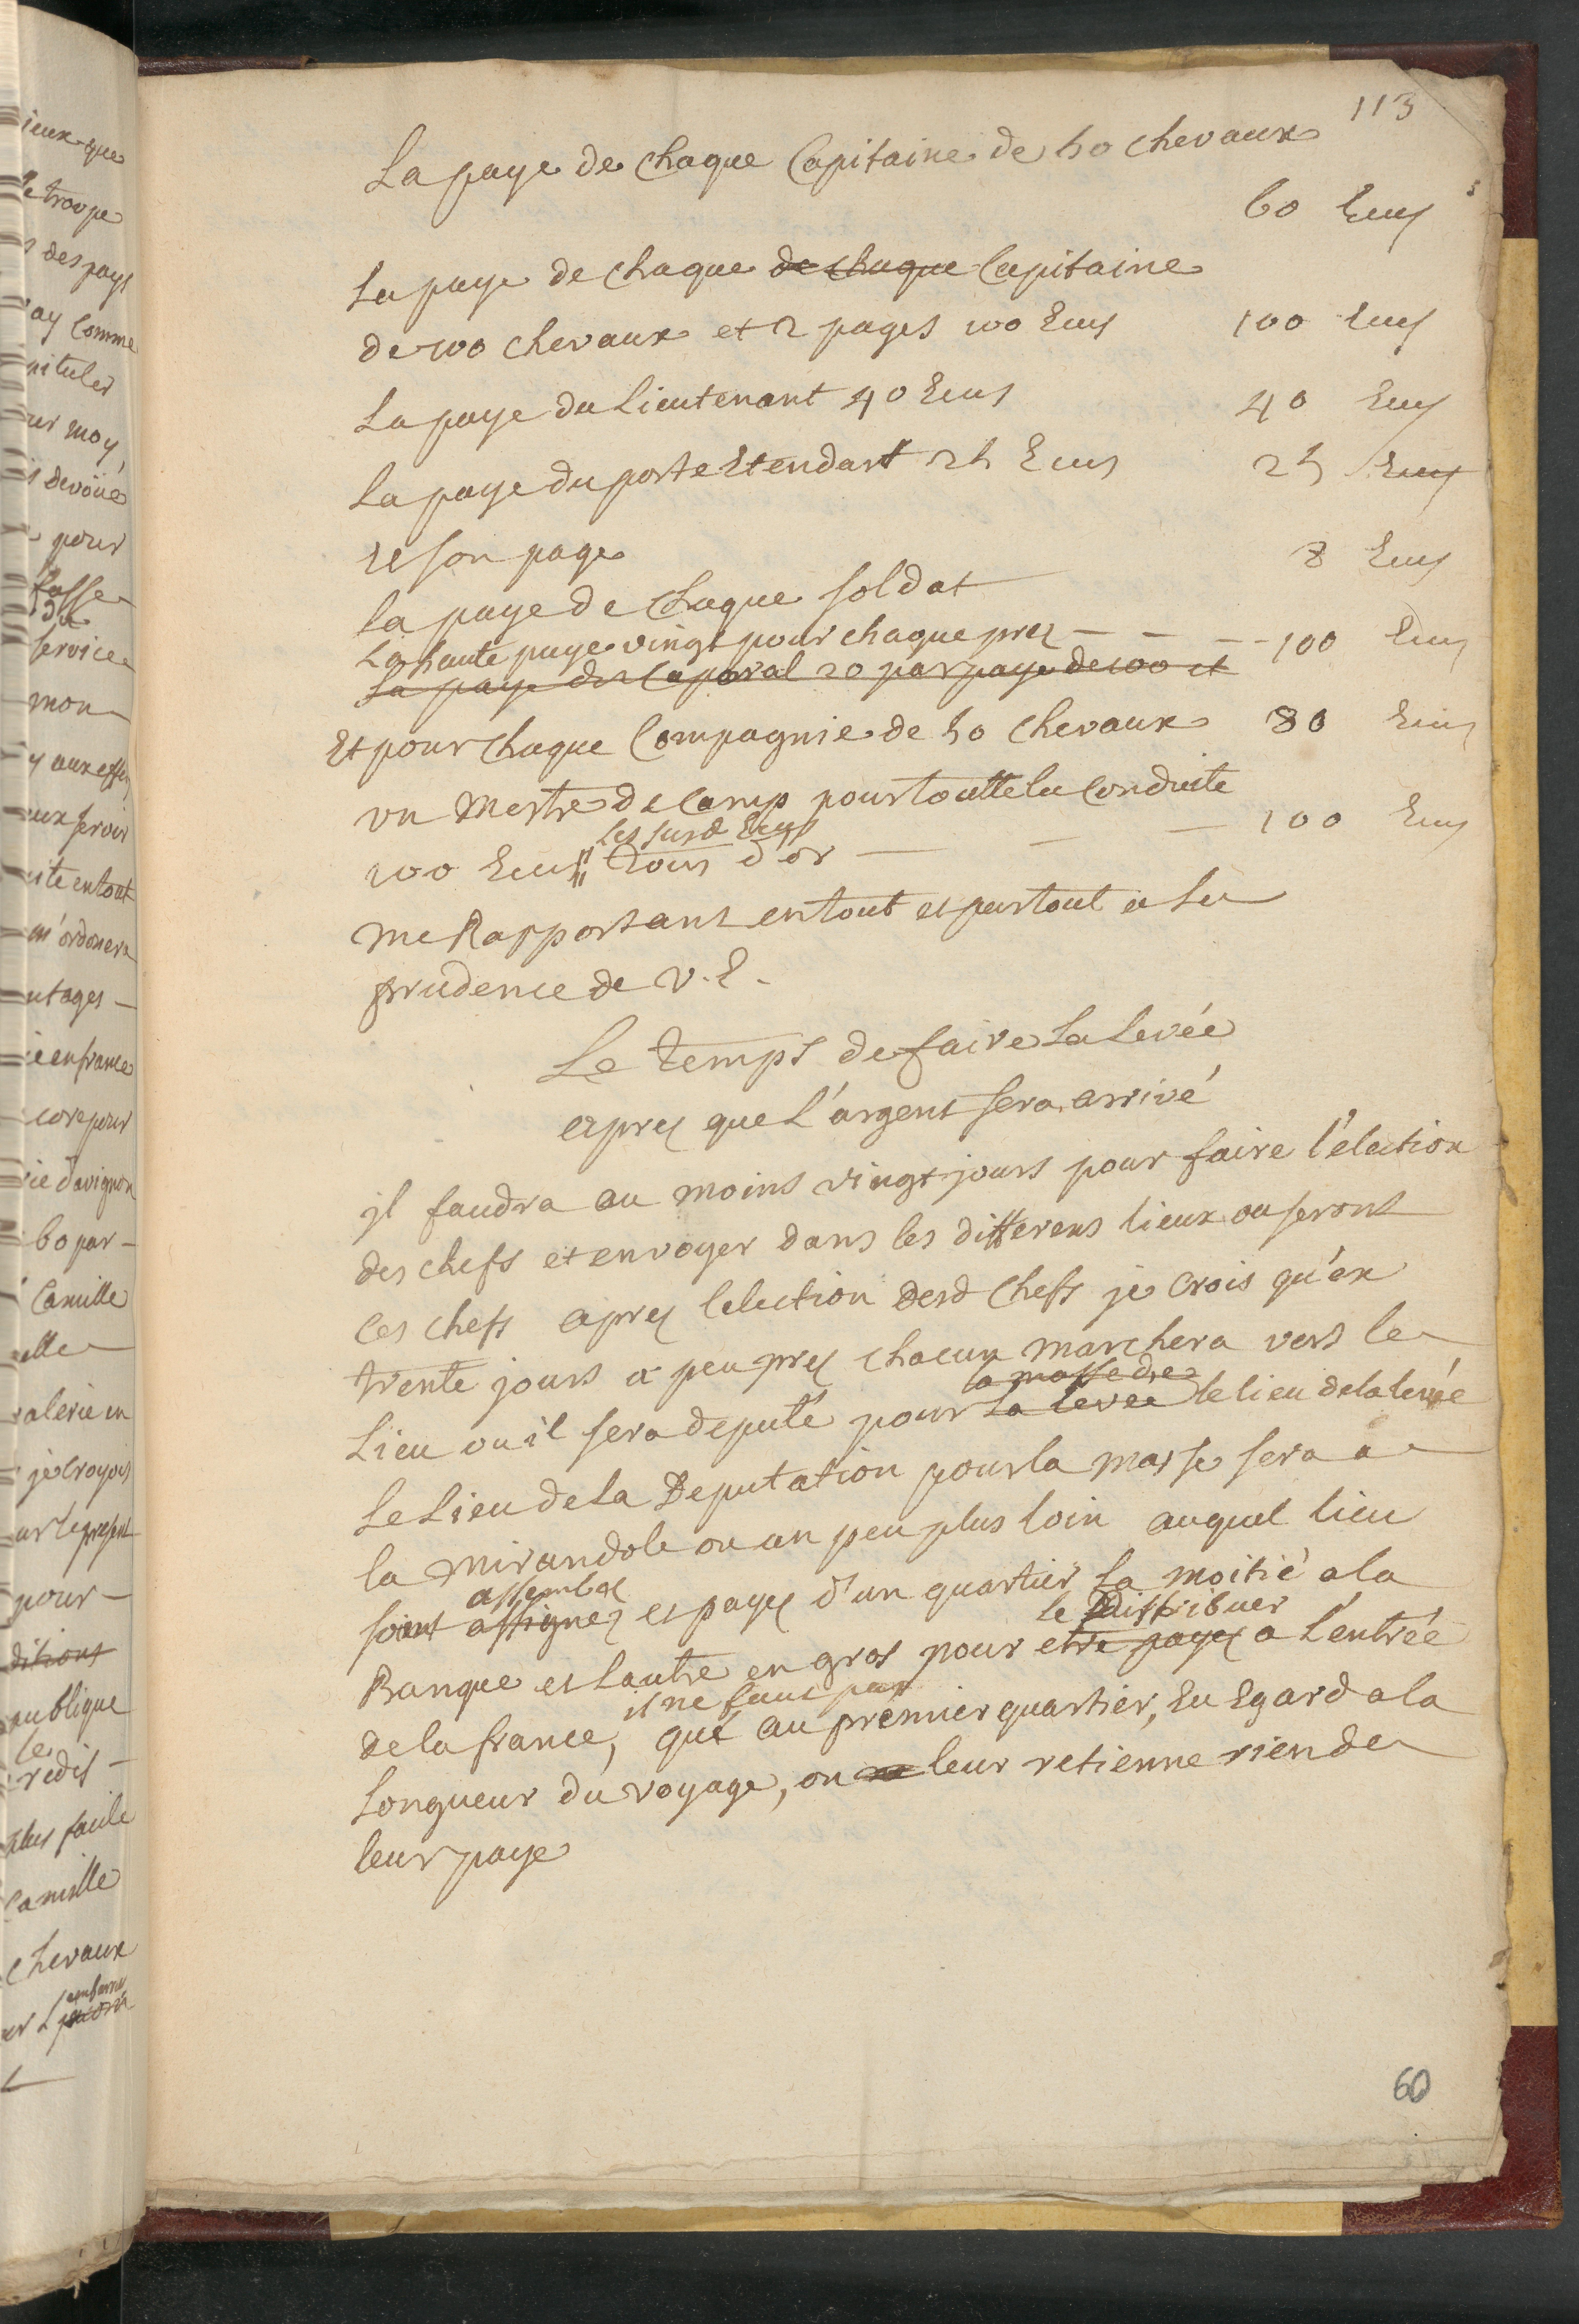 113
La paye de chaque Capitaine de 50 chevaux
60 Ecus
La paye de chaque de chaque Capitaine
de 100 chevaux et 2 pages 100 Ecus 100 Ecus
La paye du Lieutenant 40 Ecus 40 Ecus
La paye du porte Etendart 25 Ecus 25 Ecus
et son page 8 Ecus
la paye de chaque soldat
La haute paye vingt pour chaque prez - - - 100 Ecus
La paye des Caporal 20 par paye de 100 et
Et pour chaque Compagnie de 50 chevaux 80 Ecus
un Mestre de Camp pour toutte la Conduite
les susd Ecus
100 Ecus tous d'or — - — 100 Ecus
me Rapportant en tout et partout a la
prudence de V. E.
Le temps de faire La Levée
apres que L'argent sera arrivé
il faudra au moins vingt jours pour faire l'election
des chefs et envoyer dans les differens lieux ou seront
ces chefs apres lelection desd Chefs je crois qu'en
trente jours a peu pres chacun marchera vers le
la masse de
Lieu ou il sera deputé pour la levée le lieu de la levée
Le Lieu de La Deputation pour la masse sera a
la Mirandole ou un peu plus loin auquel lieu
assemblez
soint assignez et payez d'un quartier La moitié a la
le distribuer
Banque et Lautre en gros pour etre payez a L'entrée
il ne faut pas
de la france, que au premier quartier, Eu Egard a la
Longueur du voyage, on leur retienne rien de
leur paye
60
ieux que
troupe
des pays
ay Comme
pituler
ur moy,
devoüe
pour
fasse
service
mon
ite en tout
m'ordonera
ntages -
ie en france
core pour
rie d'avignon
60 par -
Camille
alerie en
je croyois
pour -
ditions
publique
le
redis -
plus facile
Camille
chevaux